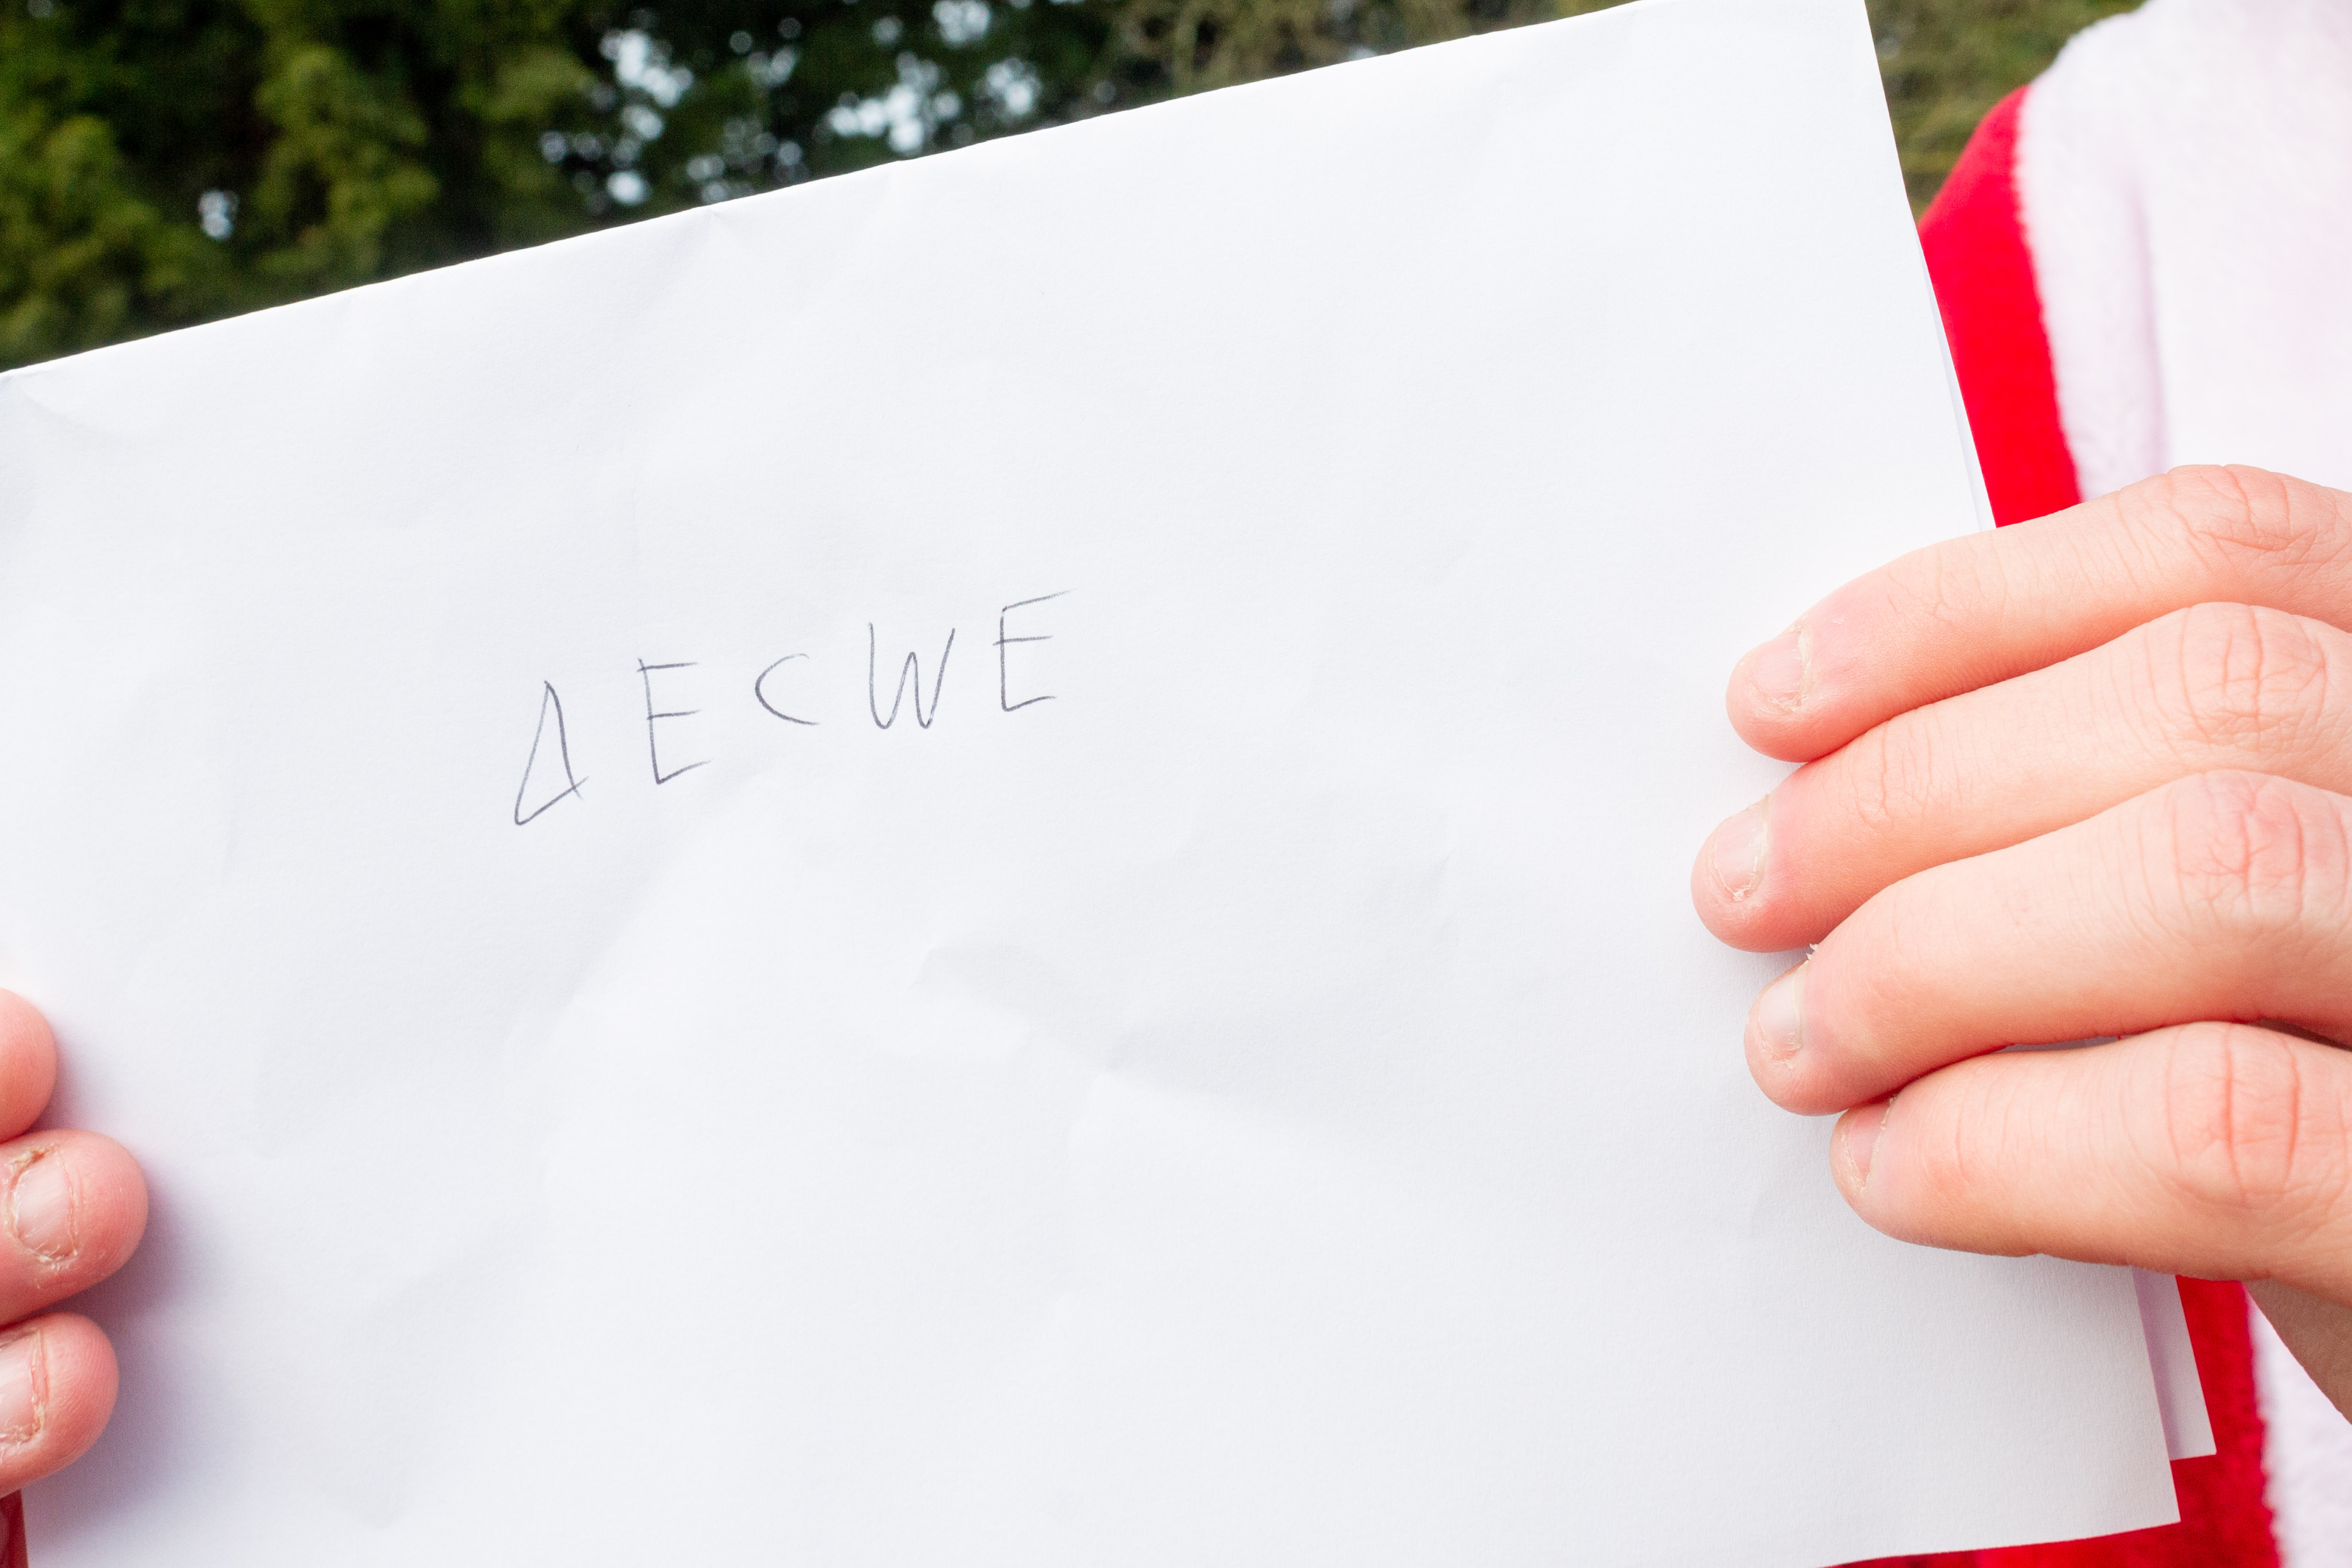 ΔECWE